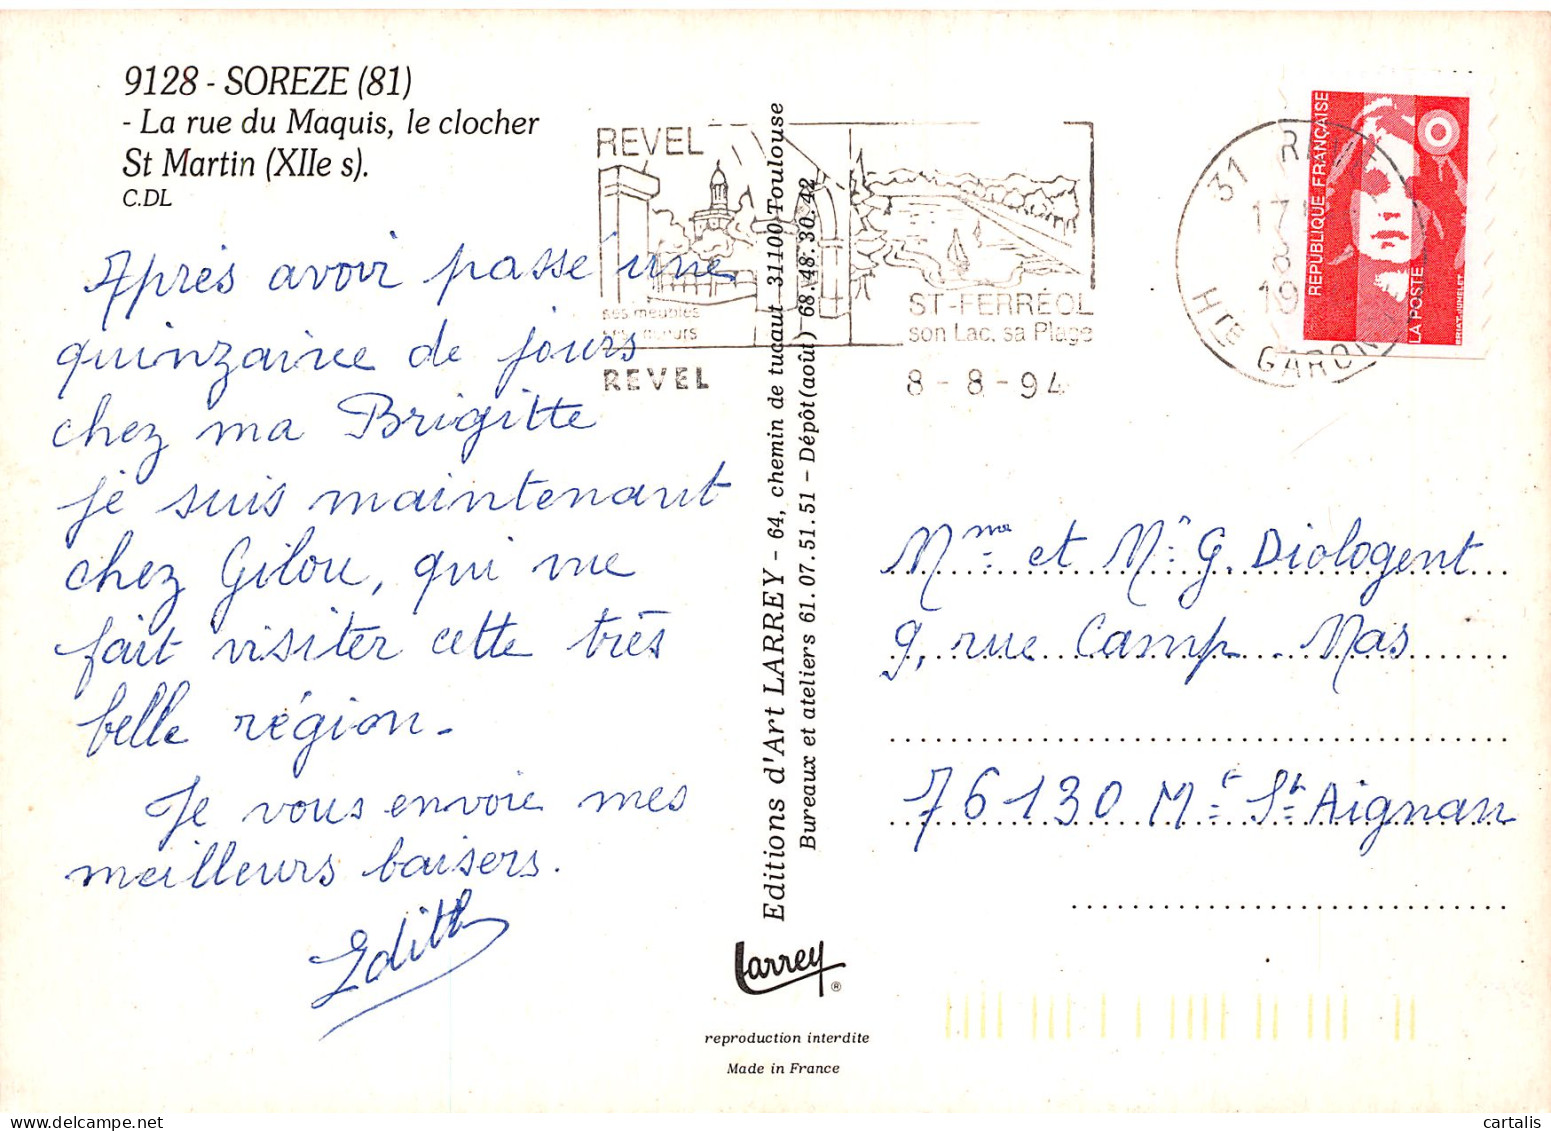 9128 - SOREZE (81)
- La rue du Maquis, le clocher
St Martin (XIIe s).
C.DL
Après avoir passé une
quinzaine de jours
chez ma Brigitte
je suis maintenant
chez Gilou, qui me
fait visiter cette très
belle région.
Je vous envoie mes
meilleurs baisers.
Edith
Editions d'Art LARREY - 64, chemin de tucaut 31100 Toulouse
Bureaux et ateliers 61.07.51.51 - Dépôt (août) 68.48.30.42
Larrey ®
reproduction interdite
Made in France
REVEL
ses meubles
REVEL
ST-FERRÉOL
son Lac, sa Plage
8-8-94
31 R
17
8
19
Hte GARON
REPUBLIQUE FRANÇAISE
LA POSTE
Mme et Mr G. Diologent
9, rue Camp Mas
76130 Mt St Aignan
delcampe.net
cartalis